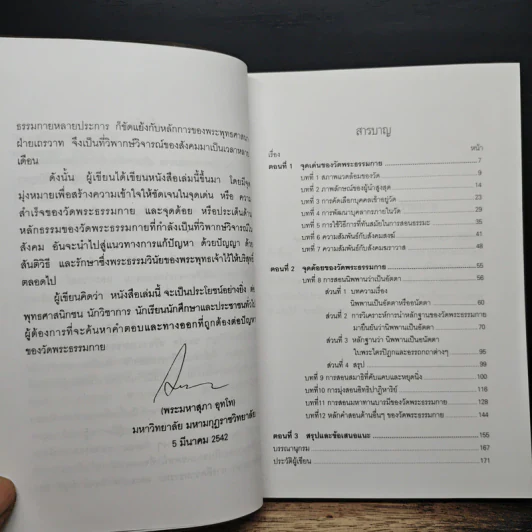 ธรรมกายหลายประการ ก็ขัดแย้งกับหลักการของพระพุทธศาสนา
ฝ่ายเถรวาท จึงเป็นที่วิพากษ์วิจารณ์ของสังคมมาเป็นเวลาหลาย
เดือน
ดังนั้น ผู้เขียนได้เขียนหนังสือเล่มนี้ขึ้นมา โดยมีจุด
มุ่งหมายเพื่อสร้างความเข้าใจให้ชัดเจนในจุดเด่น หรือ ความ
สำเร็จของวัดพระธรรมกาย และจุดด้อย หรือประเด็นด้าน
หลักธรรมของวัดพระธรรมกายที่กำลังเป็นที่วิพากษ์วิจารณ์ใน
สังคม อันจะนำไปสู่แนวทางการแก้ปัญหา ด้วยปัญญา ด้วย
สันติวิธี และรักษาซึ่งพระธรรมวินัยของพระพุทธเจ้าไว้ให้บริสุทธิ์
ตลอดไป
ผู้เขียนคิดว่า หนังสือเล่มนี้ จะเป็นประโยชน์อย่างยิ่ง ต่อ
พุทธศาสนิกชน นักวิชาการ นักเรียนนักศึกษาและประชาชนทั่วไป
ผู้ต้องการที่จะค้นหาคำตอบและทางออกที่ถูกต้องต่อปัญหา
ของวัดพระธรรมกาย
(พระมหาสุภา อุทโท)
มหาวิทยาลัย มหามกุฏราชวิทยาลัย
5 มีนาคม 2542
สารบาญ
เรื่อง หน้า
ตอนที่ 1 จุดเด่นของวัดพระธรรมกาย 7
บทที่ 1 สภาพแวดล้อมของวัด 9
บทที่ 2 ภาพลักษณ์ของผู้นำสูงสุด 14
บทที่ 3 การคัดเลือกบุคคลเข้าอยู่วัด 23
บทที่ 4 การพัฒนาบุคลากรภายในวัด 29
บทที่ 5 การใช้วิธีการที่ทันสมัยในการสอนธรรมะ 35
บทที่ 6 ความสัมพันธ์กับสังคมสงฆ์ 41
บทที่ 7 ความสัมพันธ์กับสังคมฆราวาส 48
ตอนที่ 2 จุดด้อยของวัดพระธรรมกาย 55
บทที่ 8 การสอนนิพพานว่าเป็นอัตตา 56
ส่วนที่ 1 บทความเรื่อง
นิพพานเป็นอัตตาหรืออนัตตา 60
ส่วนที่ 2 การวิเคราะห์การนำหลักฐานของวัดพระธรรมกาย
มายืนยันว่านิพพานเป็นอัตตา 70
ส่วนที่ 3 หลักฐานว่า นิพพานเป็นอนัตตา
ในพระไตรปิฎกและอรรถกถาต่างๆ 95
ส่วนที่ 4 สรุป 99
บทที่ 9 การสอนสมาธิที่คับแคบและหยุดนิ่ง 100
บทที่ 10 การมุ่งสอนอิทธิปาฏิหาริย์ 116
บทที่11 การสอนมหาทานบารมีของวัดพระธรรมกาย 129
บทที่12 หลักคำสอนด้านอื่นๆ ของวัดพระธรรมกาย 144
ตอนที่ 3 สรุปและข้อเสนอแนะ 155
บรรณานุกรม 167
ประวัติผู้เขียน 171